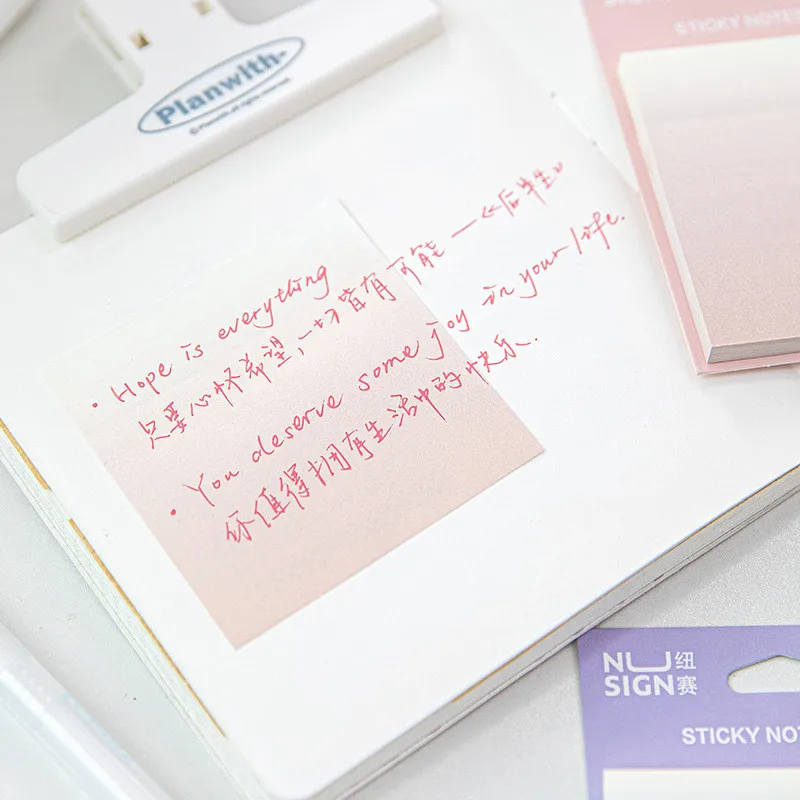 Planwith-
©Planwith all rights reserved
STICKY NOTES
• Hope is everything
只要心怀希望,一切皆有可能 —《后半生》
• You deserve some joy in your life.
你值得拥有生活中的快乐.
NUSIGN 纽赛
STICKY NOT